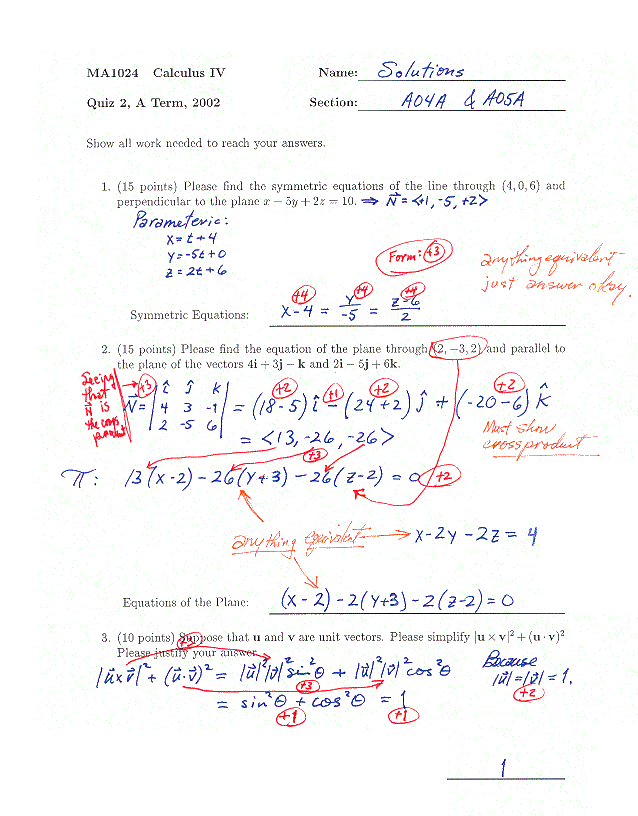 MA1024 Calculus IV Name: Solutions
Quiz 2, A Term, 2002 Section: A04A & A05A
Show all work needed to reach your answers.
1. (15 points) Please find the symmetric equations of the line through (4, 0, 6) and
perpendicular to the plane x − 5y + 2z = 10. ⇒ N⃗ = <+1, -5, +2>
Parameteric:
x = t + 4
y = -5t + 0
z = 2t + 6
Form: +3
anything equivalent
just answer okay.
+4 +4 +4
Symmetric Equations: x-4 = y/-5 = z-6/2
2. (15 points) Please find the equation of the plane through (2, −3, 2) and parallel to
the plane of the vectors 4i + 3j − k and 2i − 5j + 6k.
Seeing that N⃗ is the cross product
+3 +2 +1 +2 +2
N⃗ = | î ĵ k̂ | = (18-5) î - (24+2) ĵ + (-20-6) k̂
| 4 3 -1 |
| 2 -5 6 |
Must show
cross product
= <13, -26, -26>
+3
π: 13(x-2) - 26(y+3) - 26(z-2) = 0 +2
anything equivalent → x-2y-2z = 4
Equations of the Plane: (x-2) - 2(y+3) - 2(z-2) = 0
3. (10 points) Suppose that u and v are unit vectors. Please simplify |u × v|² + (u · v)²
Please justify your answer.
|u⃗×v⃗|² + (u⃗·v⃗)² = |u⃗|²|v⃗|² sin²θ + |u⃗|²|v⃗|² cos²θ
Because
|u⃗| = |v⃗| = 1.
+3 +2
= sin²θ + cos²θ = 1
+1 +1
1